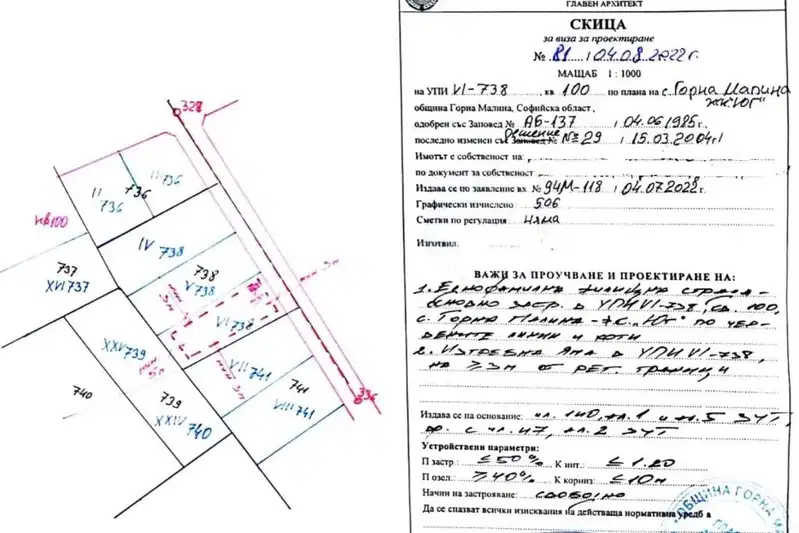 328
II
736
736
III 736
кв100
IV 738
737
XVI 737
738
V 738
VI 738
XXV 739
VII 741
741
VIII 741
740
739
XXIV 740
336
ГЛАВЕН АРХИТЕКТ
СКИЦА
за виза за проектиране
№ 81 / 04.08.2022г.
МАЩАБ 1 : 1000
на УПИ VI-738, кв 100 по плана на с. Горна Малина
ж.к. "Юг"
община Горна Малина, Софийска област,
одобрен със Заповед № АБ-137 / 04.06.1985г.
решение
последно изменен със Заповед № №29 / 15.03.2004г
Имотът е собственост на:
по документ за собственост
Издава се по заявление вх. № 94М-118 / 04.07.2022г.
Графически изчислено 506
Сметки по регулация няма
Изготвил:
ВАЖИ ЗА ПРОУЧВАНЕ И ПРОЕКТИРАНЕ НА:
1. Еднофамилна жилищна страда-
основно застр. в УПИ VI-738, кв. 100,
с. Горна Малина - ж.с. "Юг" по чер-
вените линии и коти
2. Изгребна яма в УПИ VI-738,
на ≥3м от рег. граници
Издава се на основание: чл. 140, ал. 1 и ал. 5 ЗУТ,
вр. с чл. 47, ал. 2 ЗУТ
Устройствени параметри:
П застр.: ≤50% К инт.: ≤1.20
П озел.: ≥40% К корниз: ≤10м
Начин на застрояване: свободно
Да се спазват всички изисквания на действаща нормативна уредба в
ОБЩИНА ГОРНА